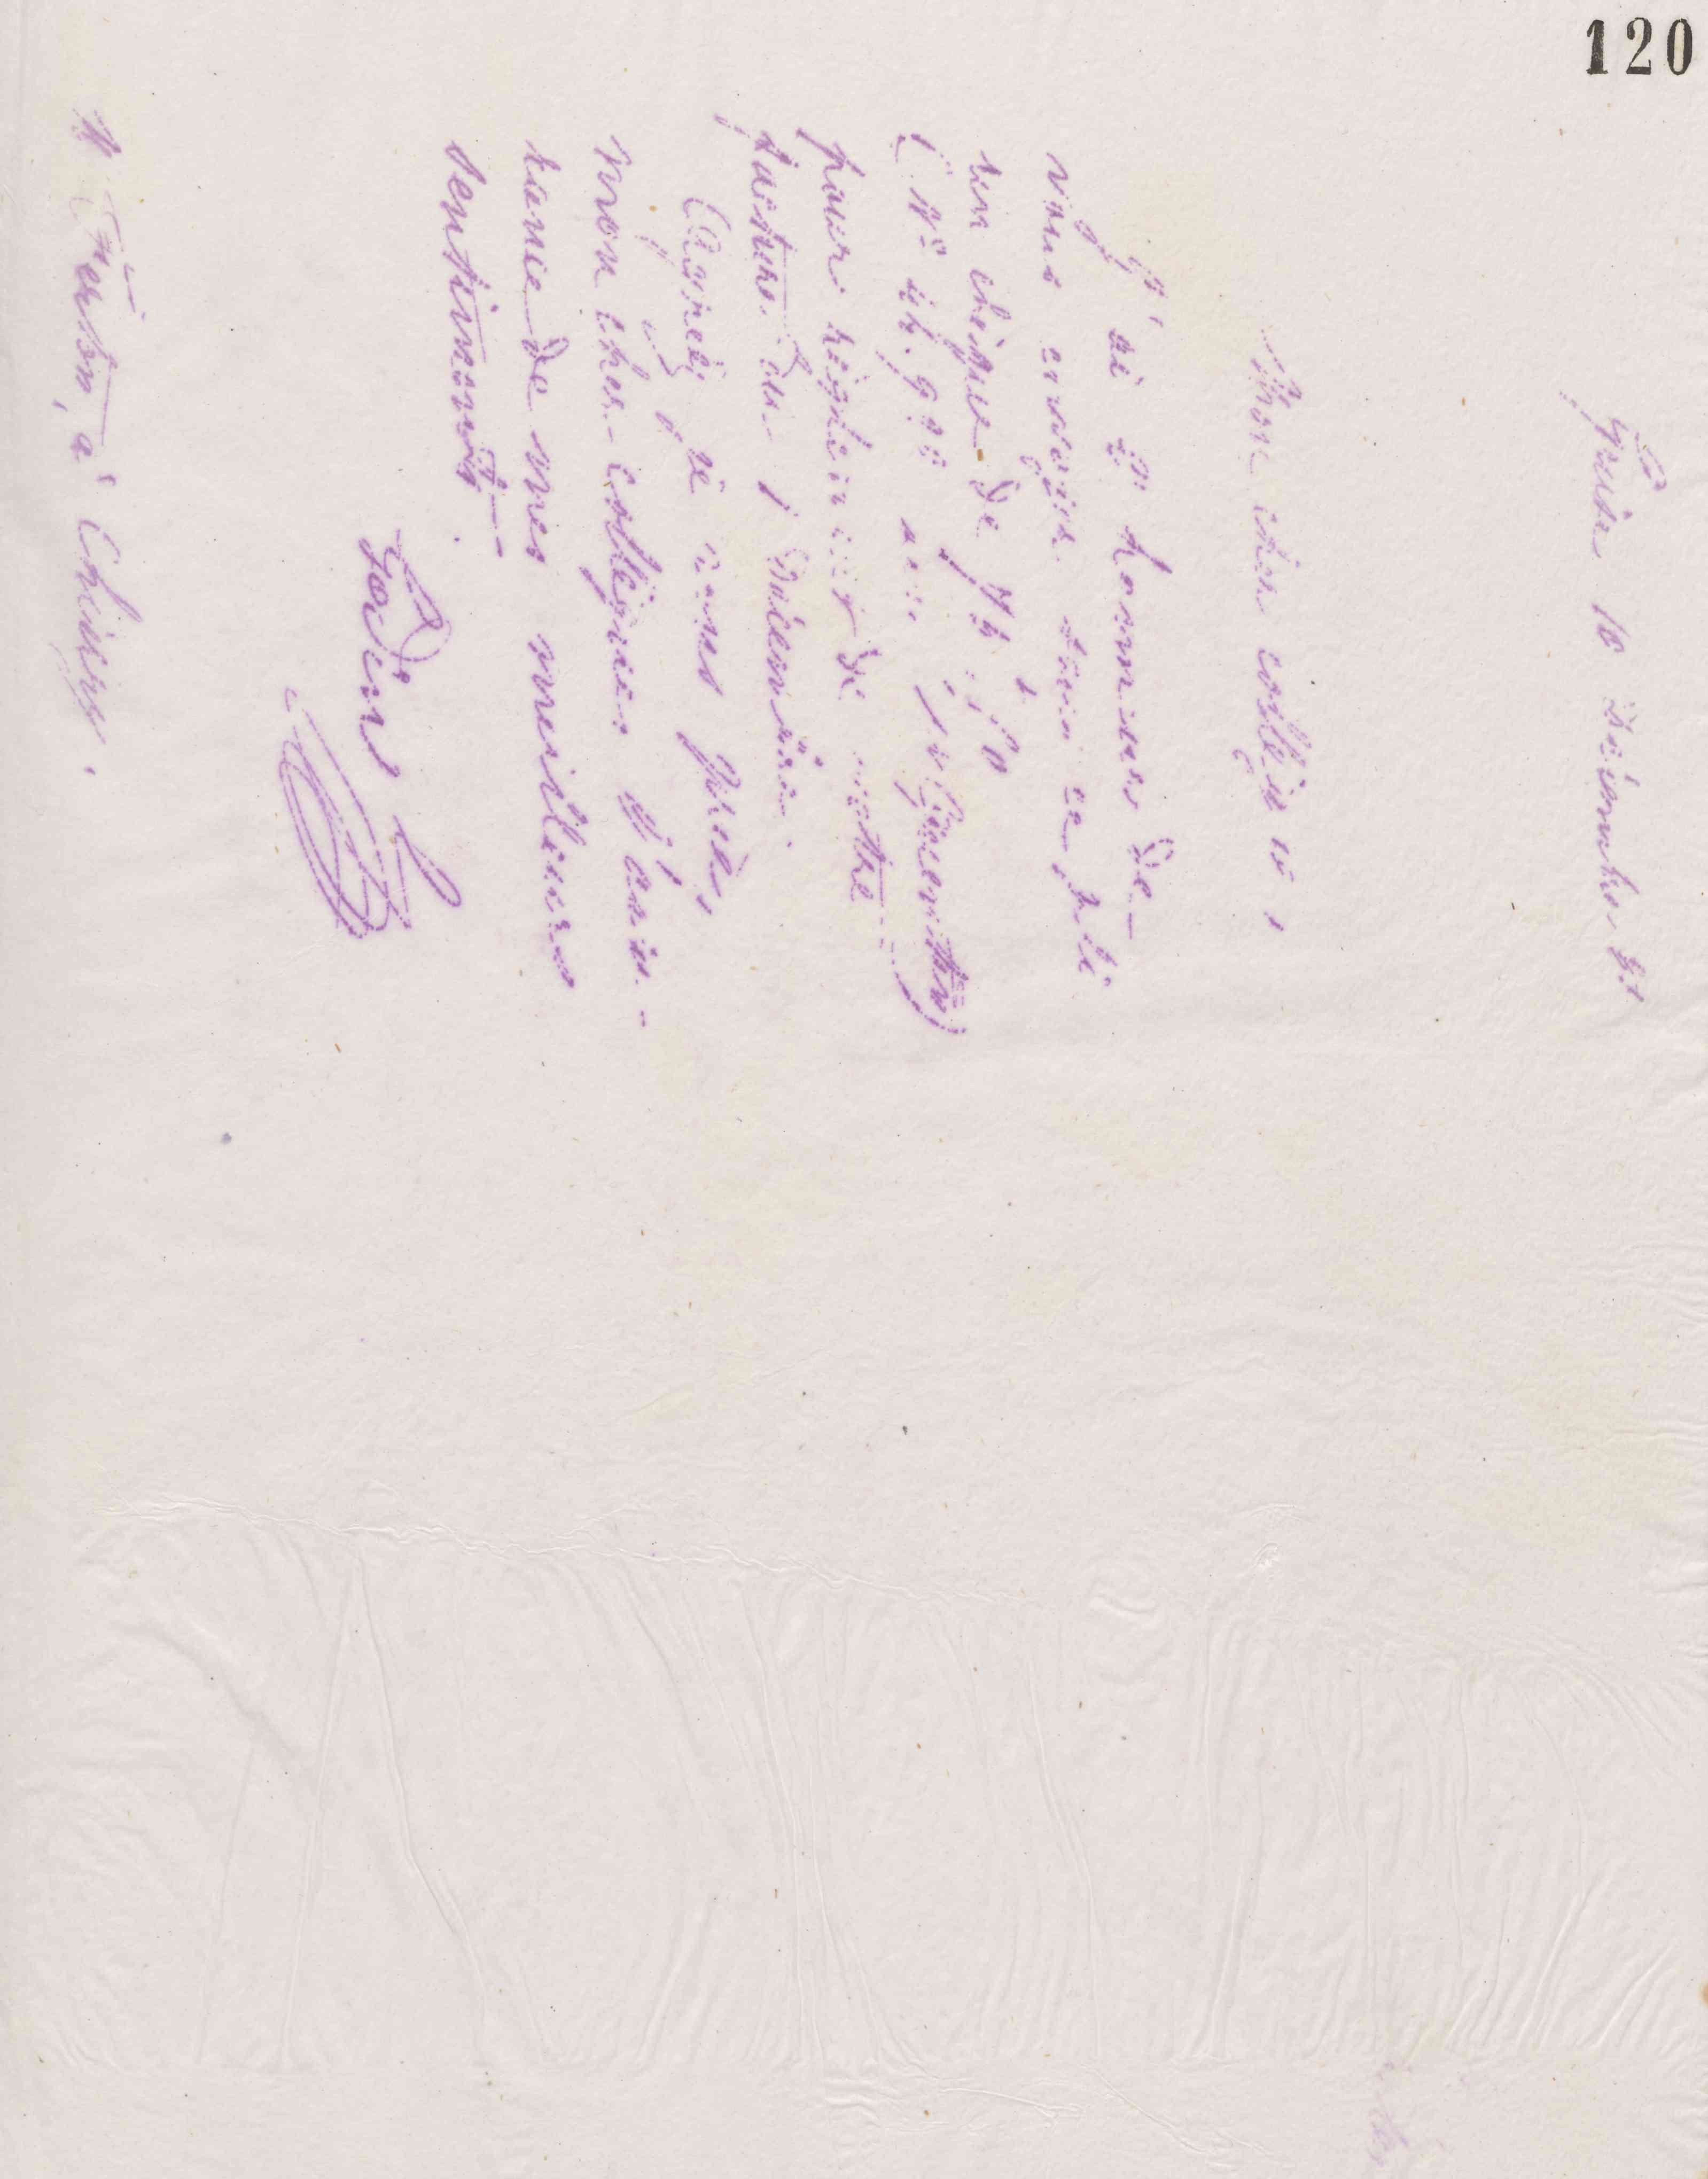 120
Guise 10 décembre
Mon cher collègue,
J'ai l'honneur de
vous envoyer sous ce pli
un chèque de
(N° sur St Quentin)
pour règlement de votre
facture du 1 décembre.
Agréez je vous prie,
mon cher collègue l'assu-
rance de mes meilleurs
sentiments.
Godin
M à Chiry.